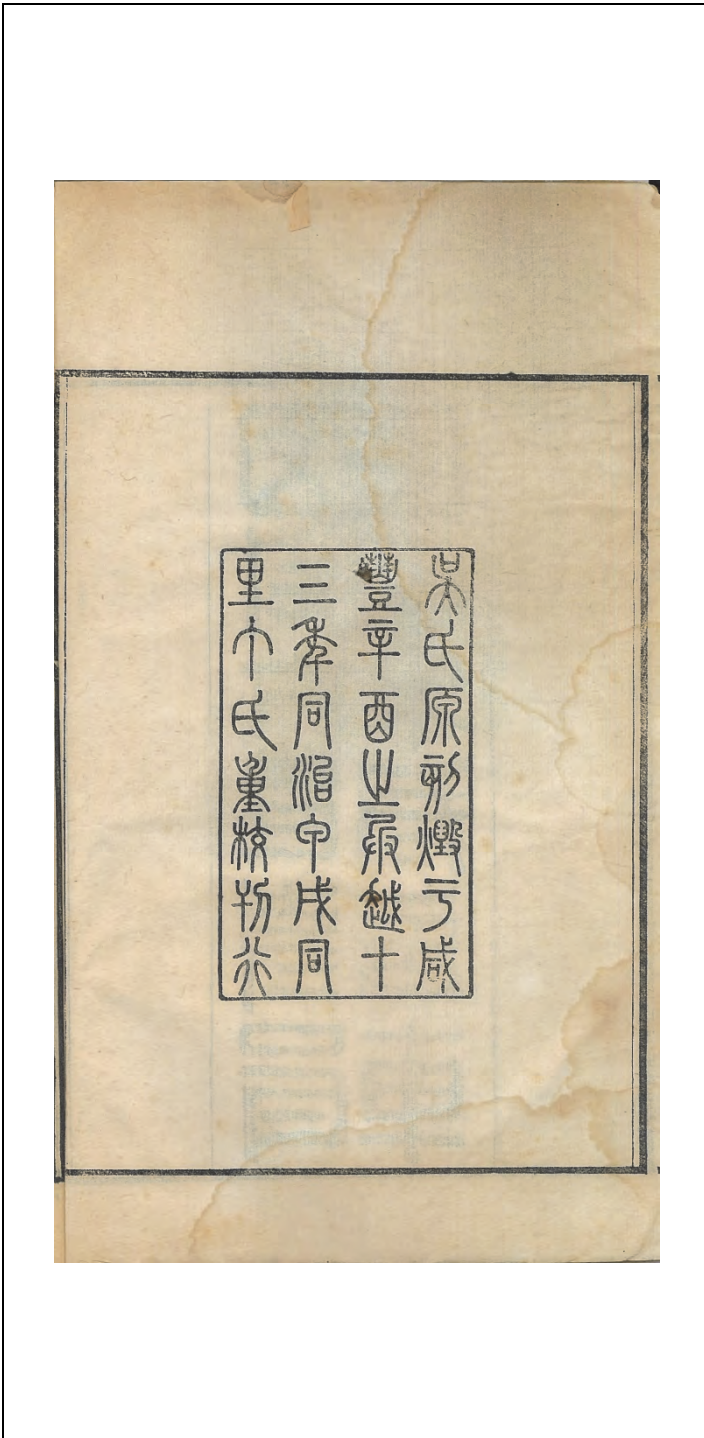 吳氏原刻燬于咸
豐辛酉之越十
三年同治甲戌同
里丁氏重校刊行